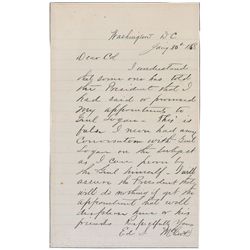 Washington D.C.
Jany 30th 186
Dear Col
I understand
that some one has told
the President that I
had said or promised
my appointment to
Genl Logan - This is
false I never had any
Conversation with Genl
Logan on the subject
as I can prove by
the Genl himself. I will
assure the President that
will do nothing if get the
appointment that will
displease him or his
friends Respectfully Yours
Ed